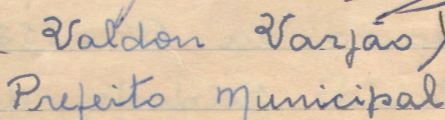 Valdon Varjão)
Prefeito Municipal